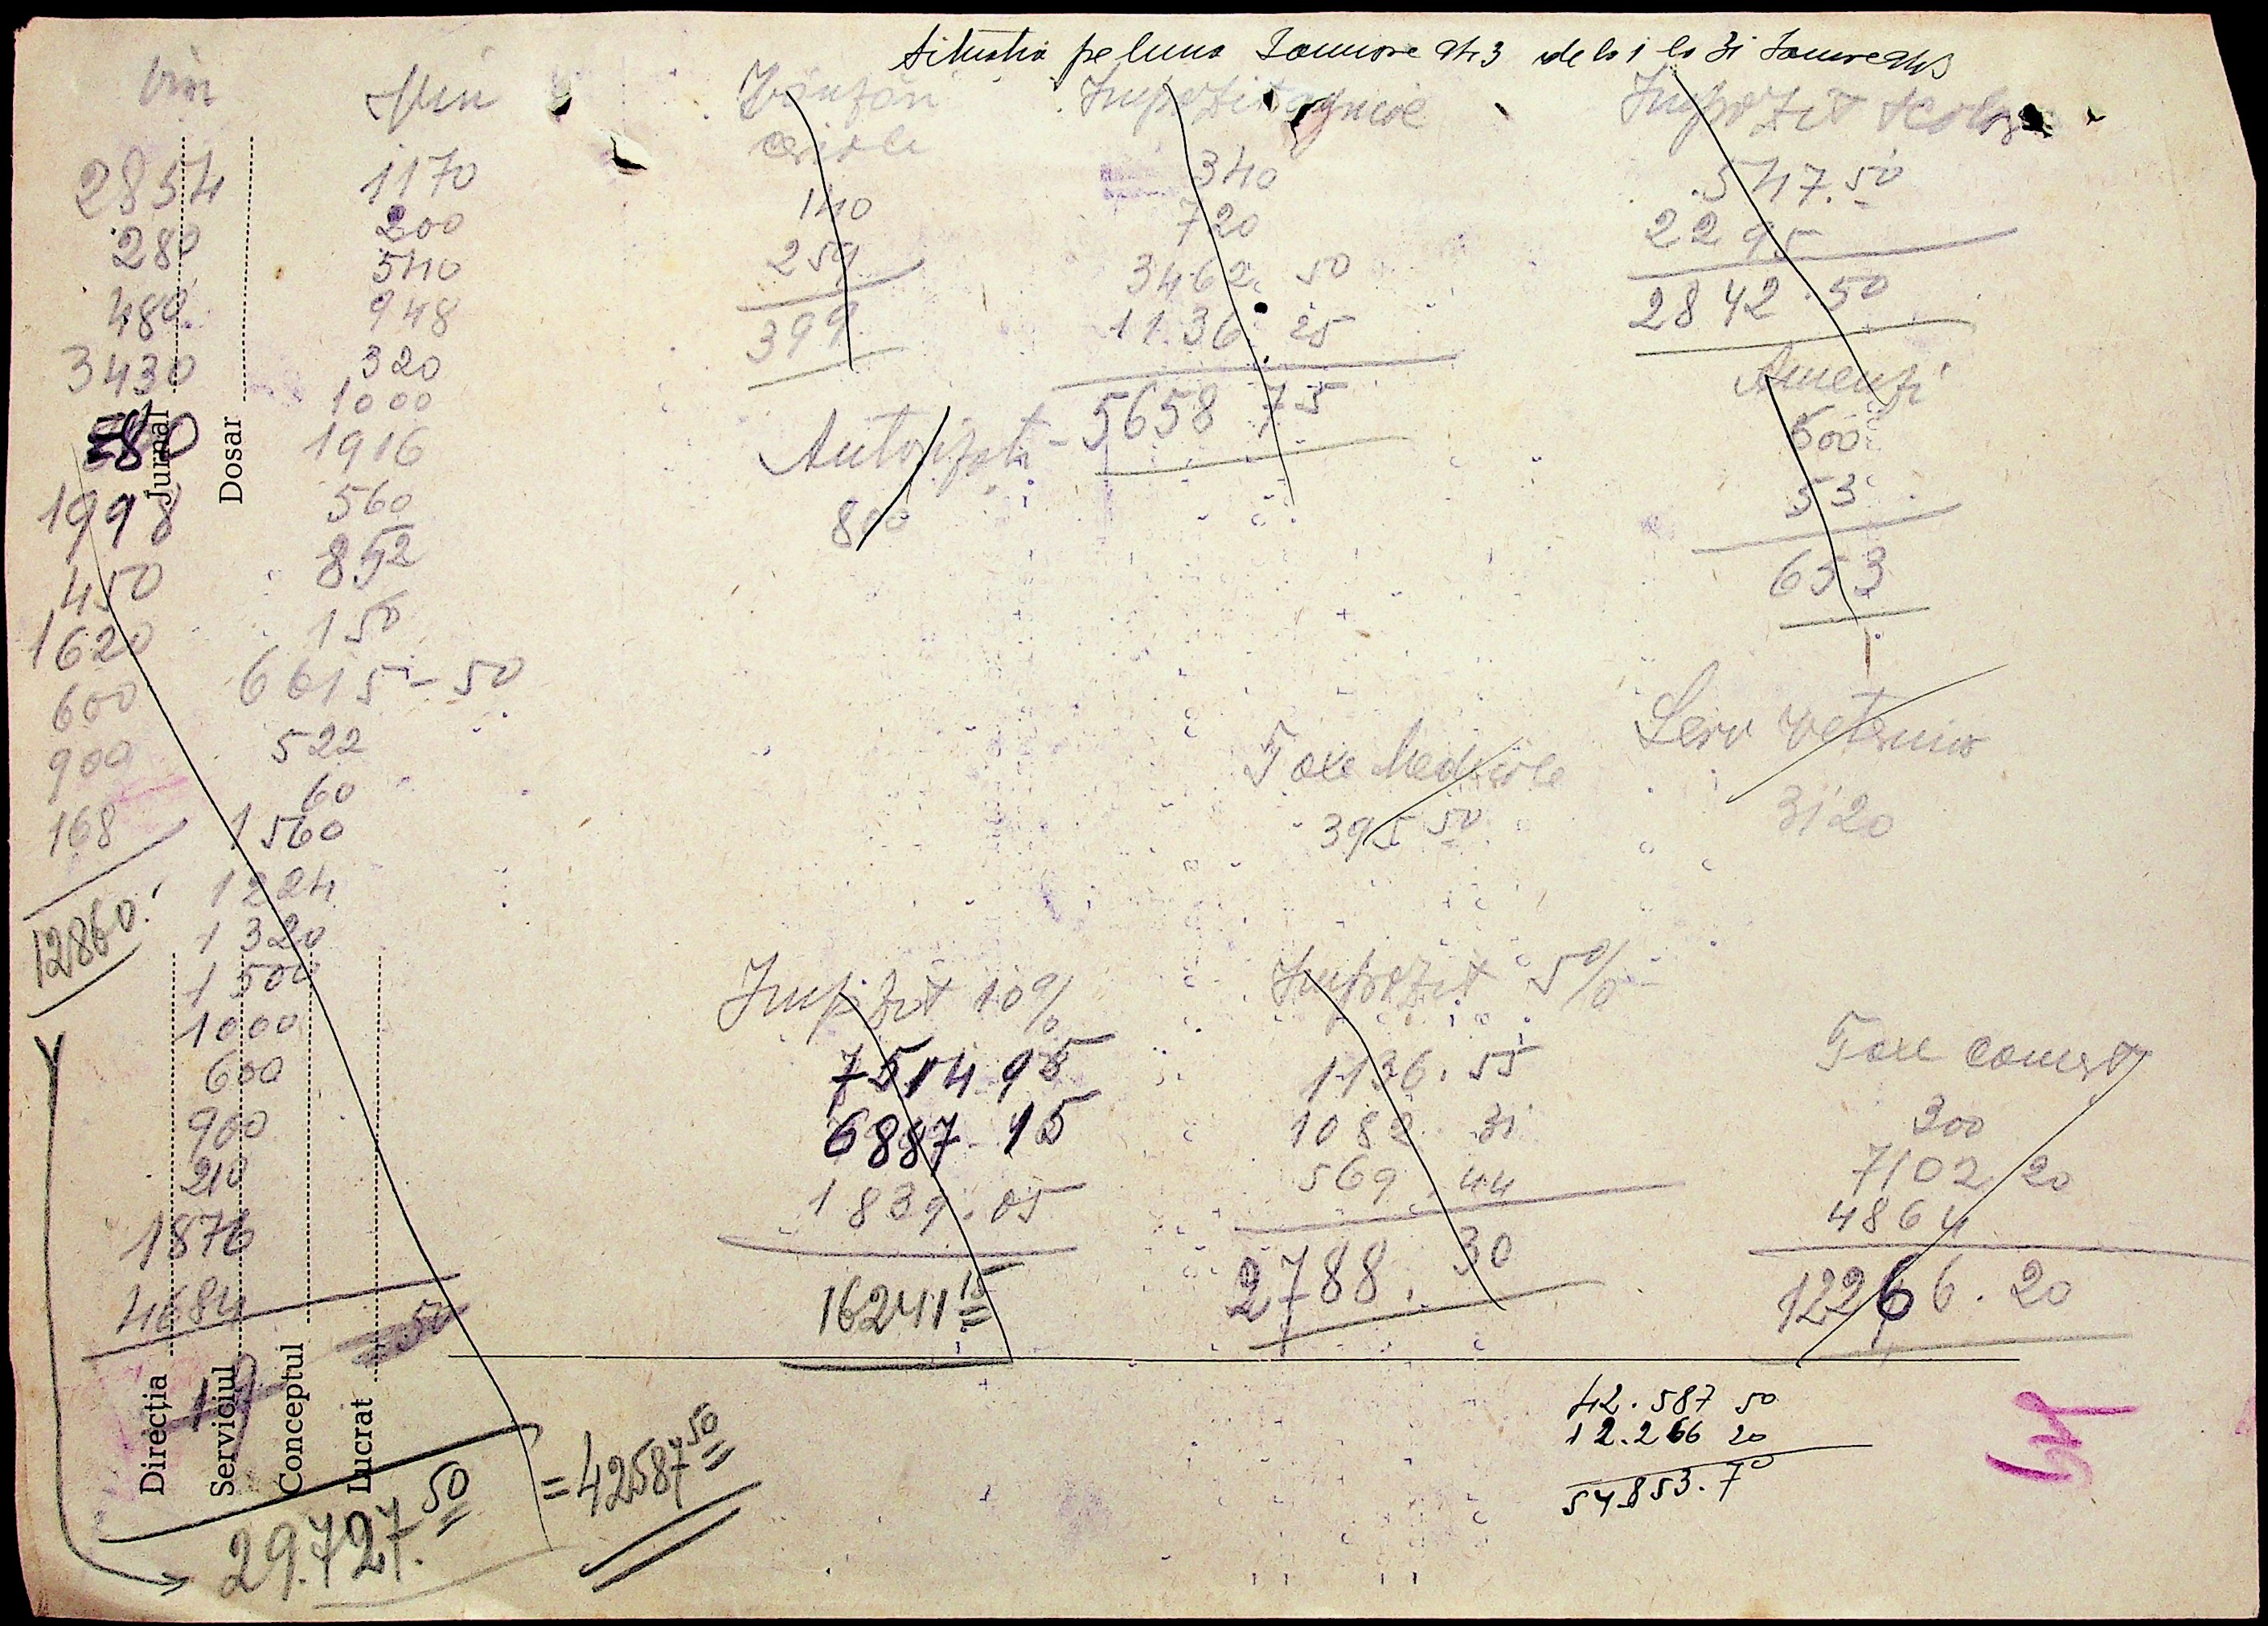 Situatia pe luna Ianuarie 943 de la 1 la 31 Ianuarie 943
Vin
2854
280
480
3430
580
1998
450
1620
600
900
168
12860
1170
200
540
948
320
1000
1916
560
852
150
6615-50
522
60
1560
1224
1320
1500
1000
600
900
210
1876
4684
50
29.727.50
=42587 50
Jurnal
Dosar
Direcția
Serviciul
Conceptul
Lucrat
140
259
399
Autorizati
800
Impozit agricol
340
720
3462. 50
1136. 25
5658 75
Impozit scolar
547.50
2295
2842.50
Amenzi
600
53
653
Taxe Medicale
395 50
Serv Veterinar
3120
Impozit 10%
7514 95
6887-15
1839.05
16241 15
Impozit 5%
1136.55
1082.31
569.44
2788.30
Taxe comert
300
7102 20
4864
12266.20
42.587 50
12.266 20
54.853.70